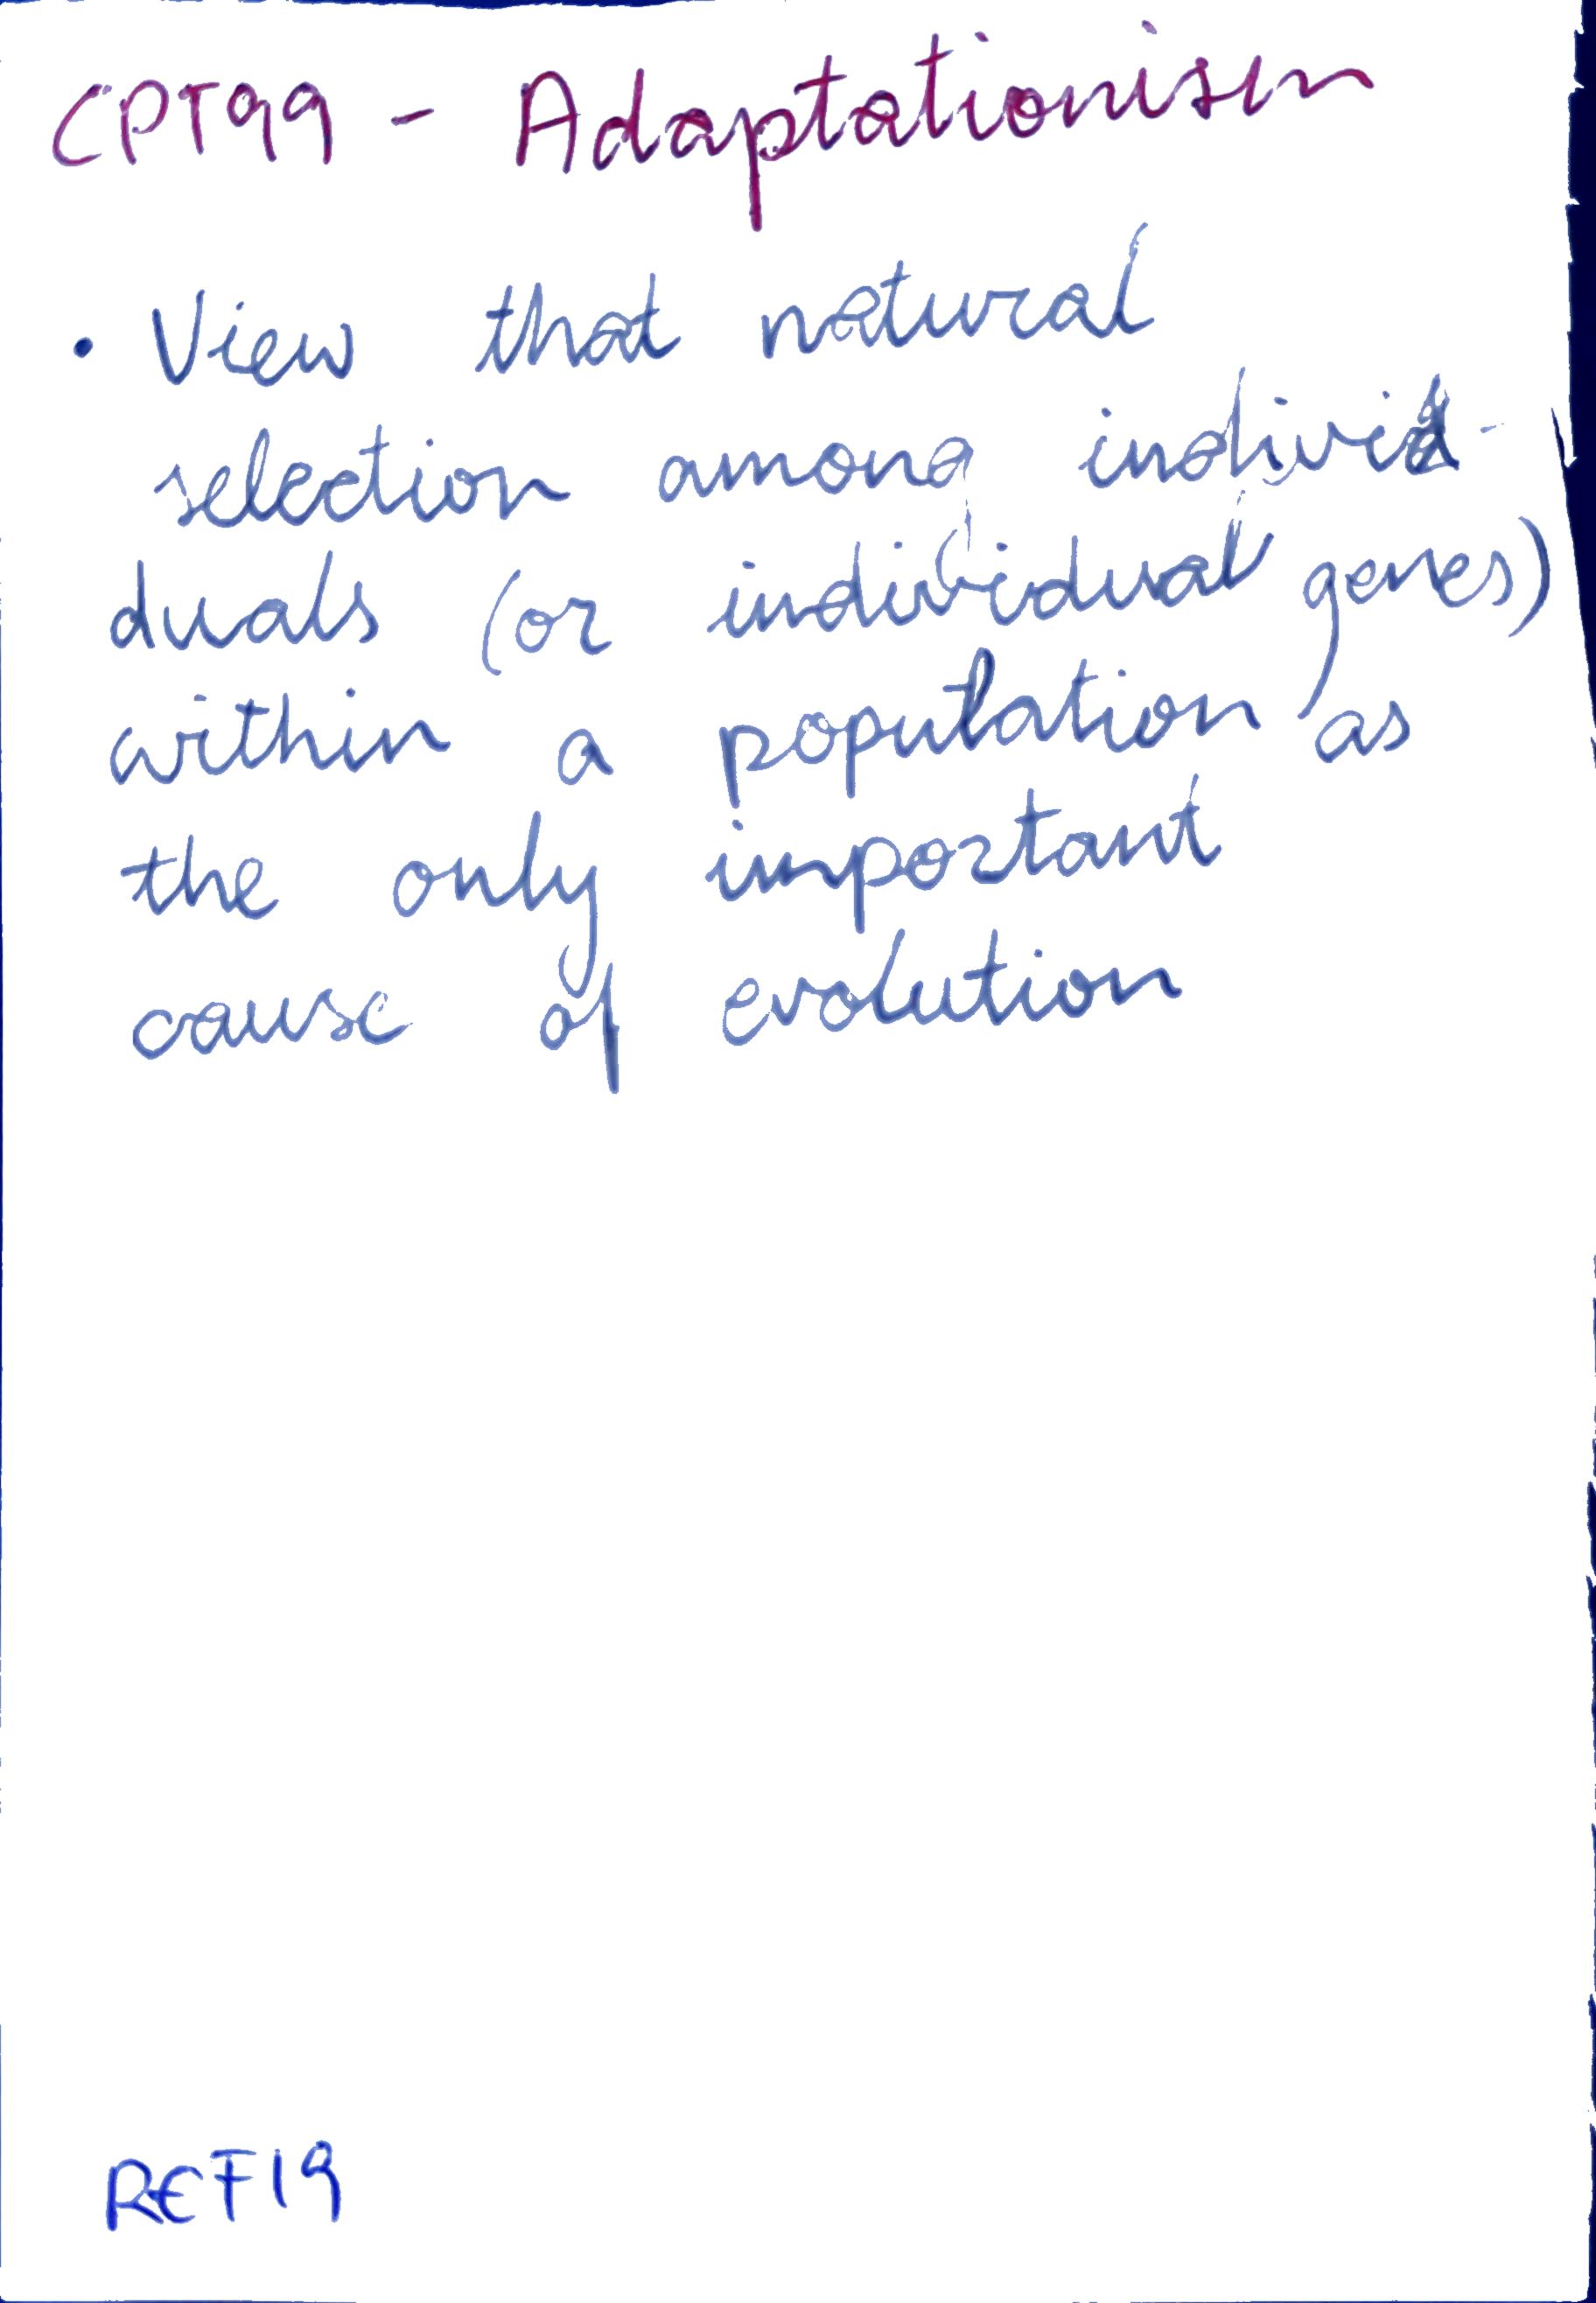 CPT99 - Adaptationism
• View that natural
selection among individ-
duals (or individual genes)
within a population as
the only important
cause of evolution
REF19